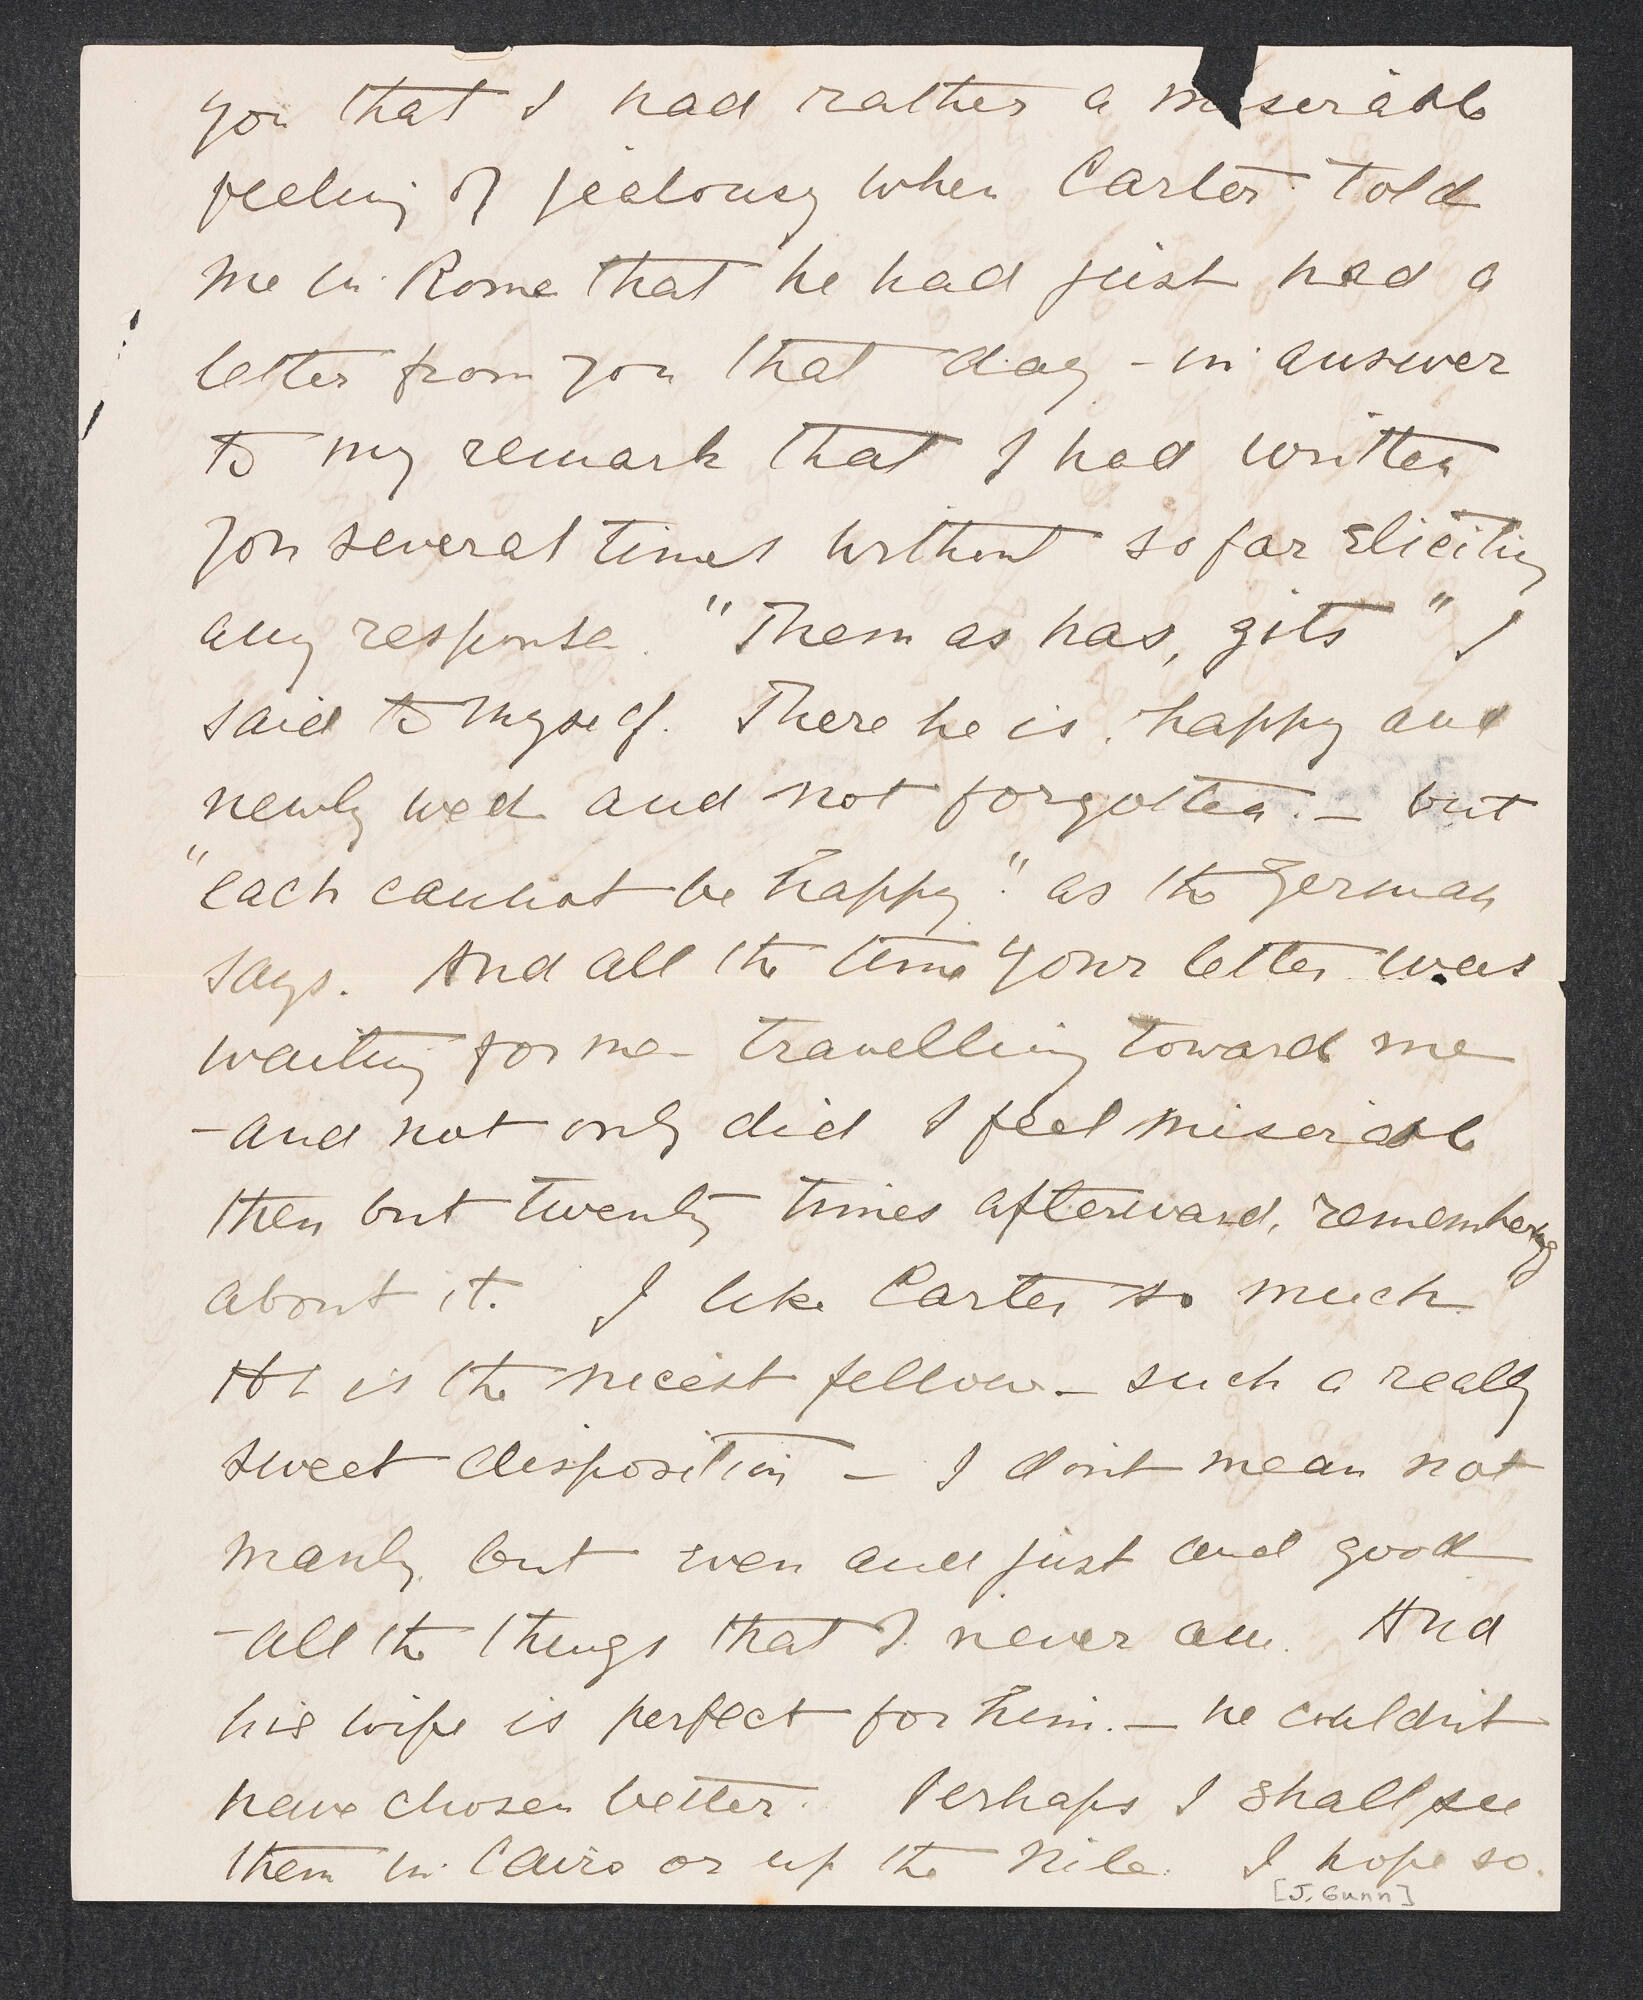 you that I had rather a miserable
feeling of jealousy when Carter told
me in Rome that he had just had a
letter from you that day - in answer
to my remark that I had written
you several times without so far eliciting
any response. "Them as has, gits" I
said to myself. There he is, happy and
newly wed and not forgotten. - but
"each cannot be happy." as the German
says. And all the time your letter was
waiting for me - travelling toward me
- and not only did I feel miserable
then but twenty times afterward, remembering
about it. I like Carter so much
He is the nicest fellow - such a really
sweet disposition - I don't mean not
manly but even and just and good
- all the things that I never am. And
his wife is perfect for him. - he couldn't
have chosen better. Perhaps I shall see
them in Cairo or up the Nile. I hope so.
[J. Gunn]